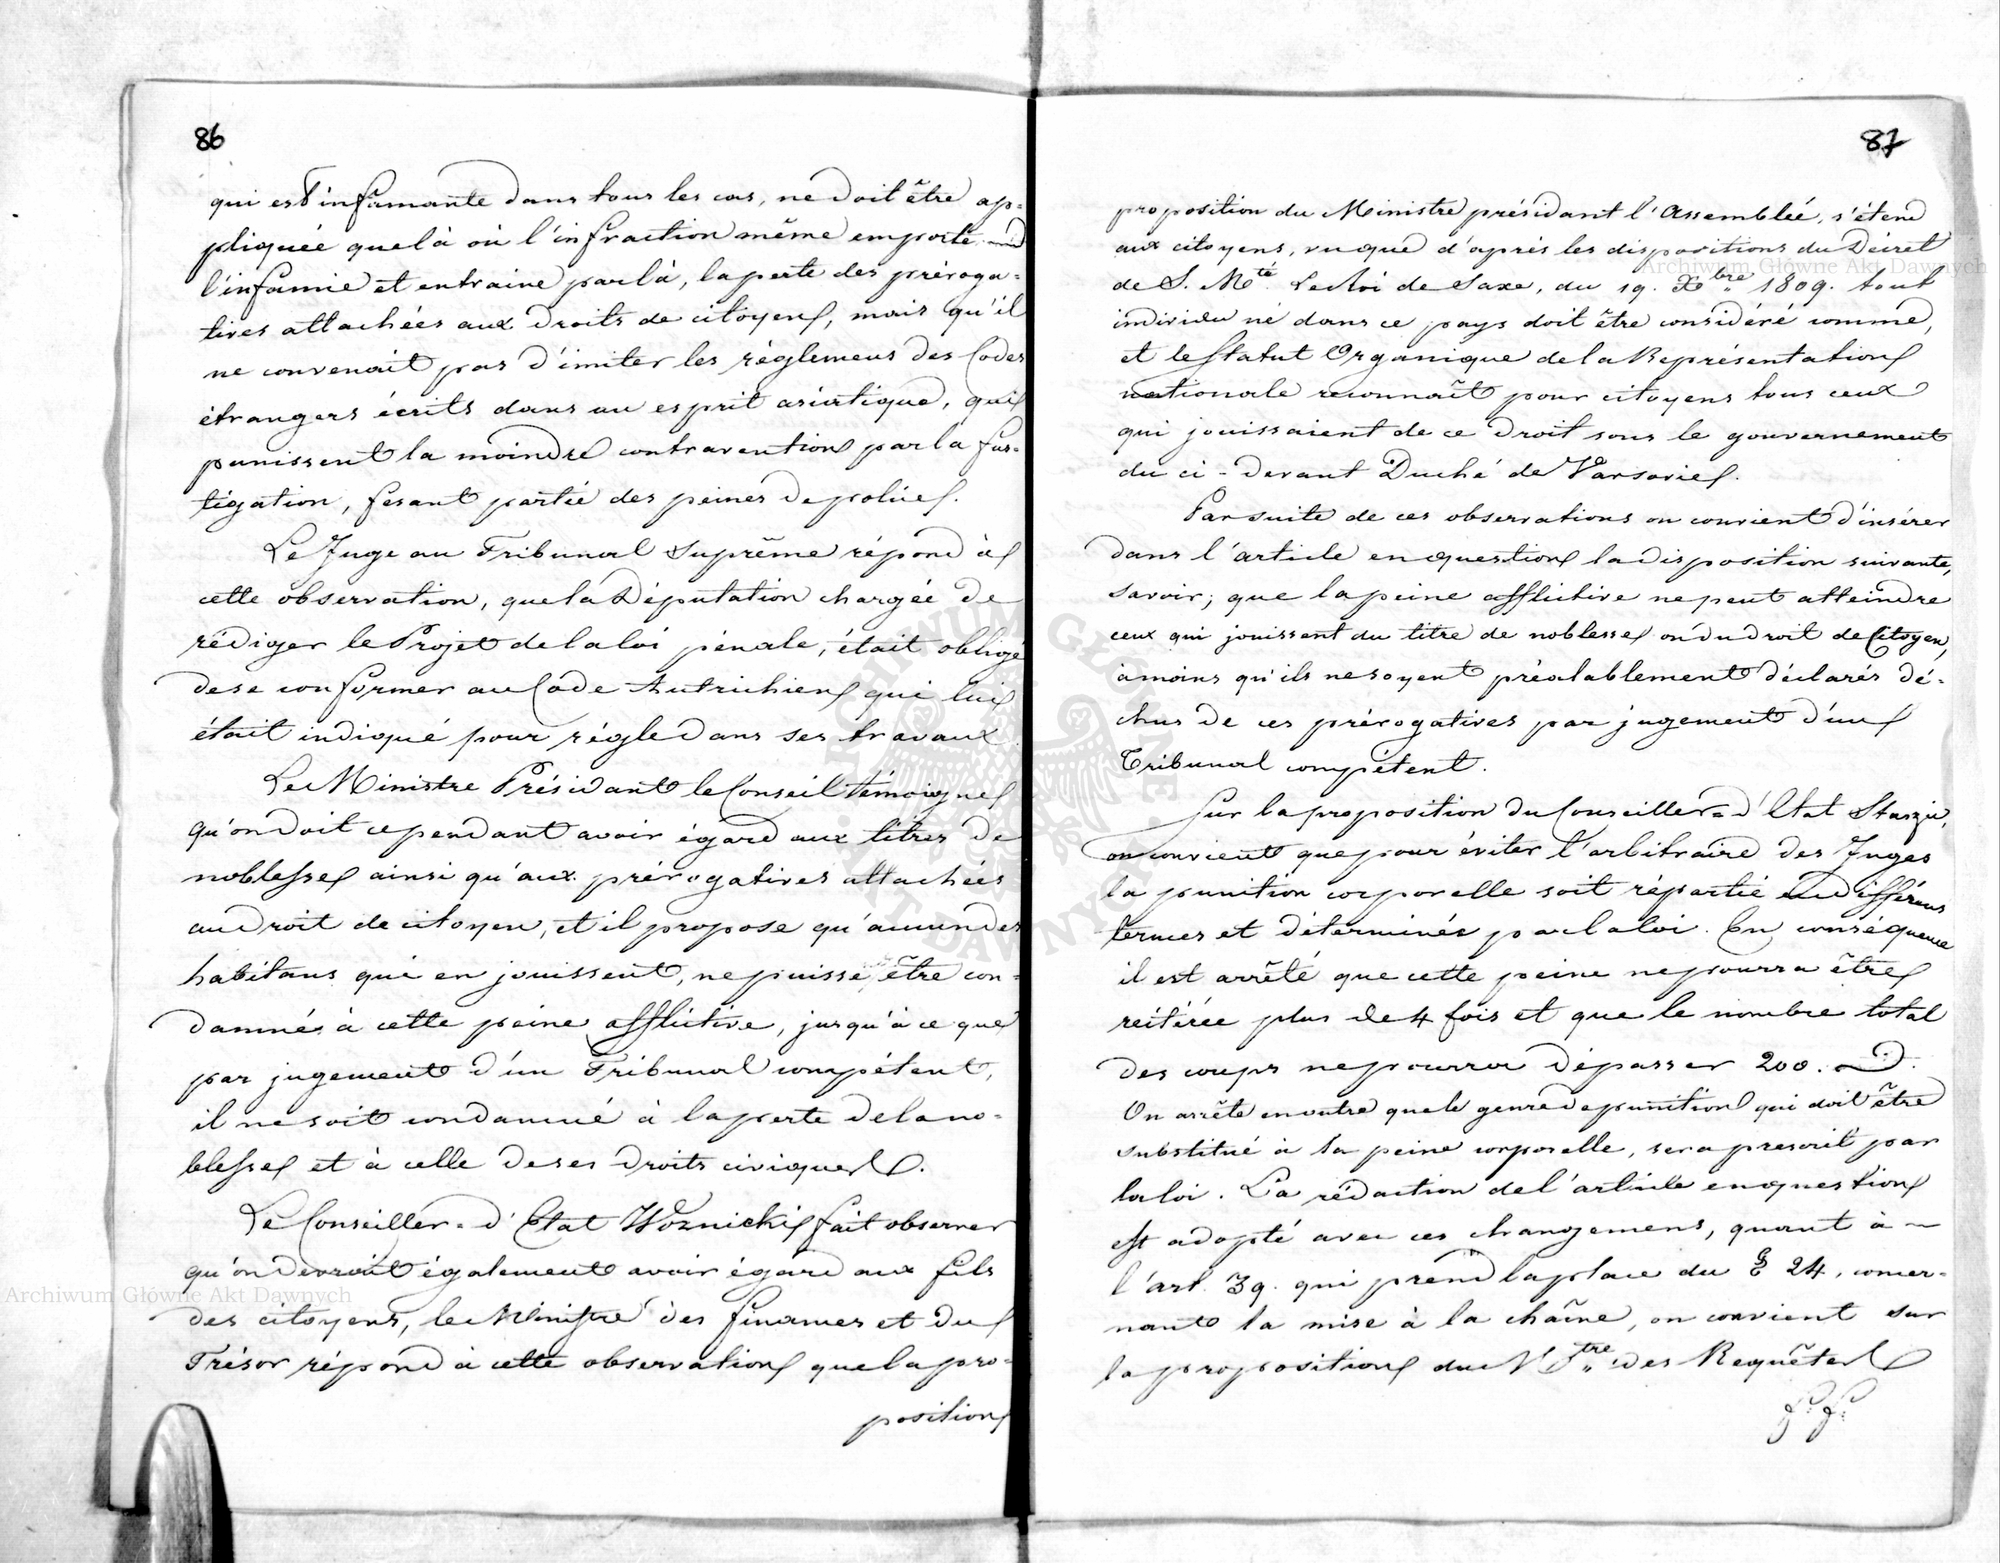 86
qui est infamante dans tous les cas, ne doit être ap-
pliquée que là où l'infraction même emporte
l'infamie et entraine par là, la perte des préroga-
tives attachées aux droits de citoyen, mais qu'il
ne convenait pas d'imiter les règlemens des Codes
étrangers écrits dans un esprit asiatique, qui
punissent la moindre contravention par la fus-
tigation, fesant partie des peines de police.
Le Juge au Tribunal Suprême répond à
cette observation, que la Députation chargée de
rédiger le Projet de la loi pénale, était obligé
de se conformer au Code Autrichien qui lui
était indiqué pour règle dans ses travaux.
Le Ministre Présidant le Conseil témoigne
qu'on doit cependant avoir égard aux titres de
noblesse ainsi qu'aux prérogatives attachées
au droit de citoyen, et il propose qu'aucun des
habitans qui en jouissent, ne puisse être con-
damné à cette peine afflictive, jusqu'à ce que
par jugement d'un Tribunal compétent,
il ne soit condamné à la perte de la no-
blesse et à celle de ses droits civiques.
Le Conseiller-d'Etat Woznicki fait observer
qu'on devrait également avoir égard aux fils
des citoyens, le Ministre des finances et du
Trésor répond à cette observation que la pro-
position
87
proposition du Ministre présidant l'Assemblée, s'étend
aux citoyens, vu que d'après les dispositions du Décret
de S. Mté. Le Roi de Saxe, du 19. Xbre 1809. tout
individu né dans ce pays doit être considéré comme,
et le Statut Organique de la Représentation
nationale reconnaît pour citoyens tous ceux
qui jouissaient de ce droit sous le gouvernement
du ci-devant Duché de Varsovie.
Par suite de ces observations on convient d'insérer
dans l'article en question la disposition suivante,
savoir; que la peine afflictive ne peut atteindre
ceux qui jouissent du titre de noblesse ou du droit de Citoyen,
à moins qu'ils ne soyent préalablement déclarés dé-
chus de ces prérogatives par jugement d'un
Tribunal compétent.
Sur la proposition du Conseiller-d'Etat Staszic,
on convient que pour éviter l'arbitraire des Juges
la punition corporelle soit répartie en différens
termes et déterminée par la loi. En conséquence
il est arrêté que cette peine ne pourra être
reitérée plus de 4 fois et que le nombre total
des coups ne pourra dépasser 200.
On arrête en outre que le genre de punition qui doit être
substitué à la peine corporelle, sera prescrit par
la loi. La rédaction de l'article en question
est adopté avec ces changemens, quant à
l'art. 39. qui prend la place du § 24, concer-
nant la mise à la chaîne, on convient sur
la proposition du Mtre des Requêtes
Archiwum Główne Akt Dawnych
Archiwum Główne Akt Dawnych
ARCHIWUM GŁÓWNE AKT DAWNYCH